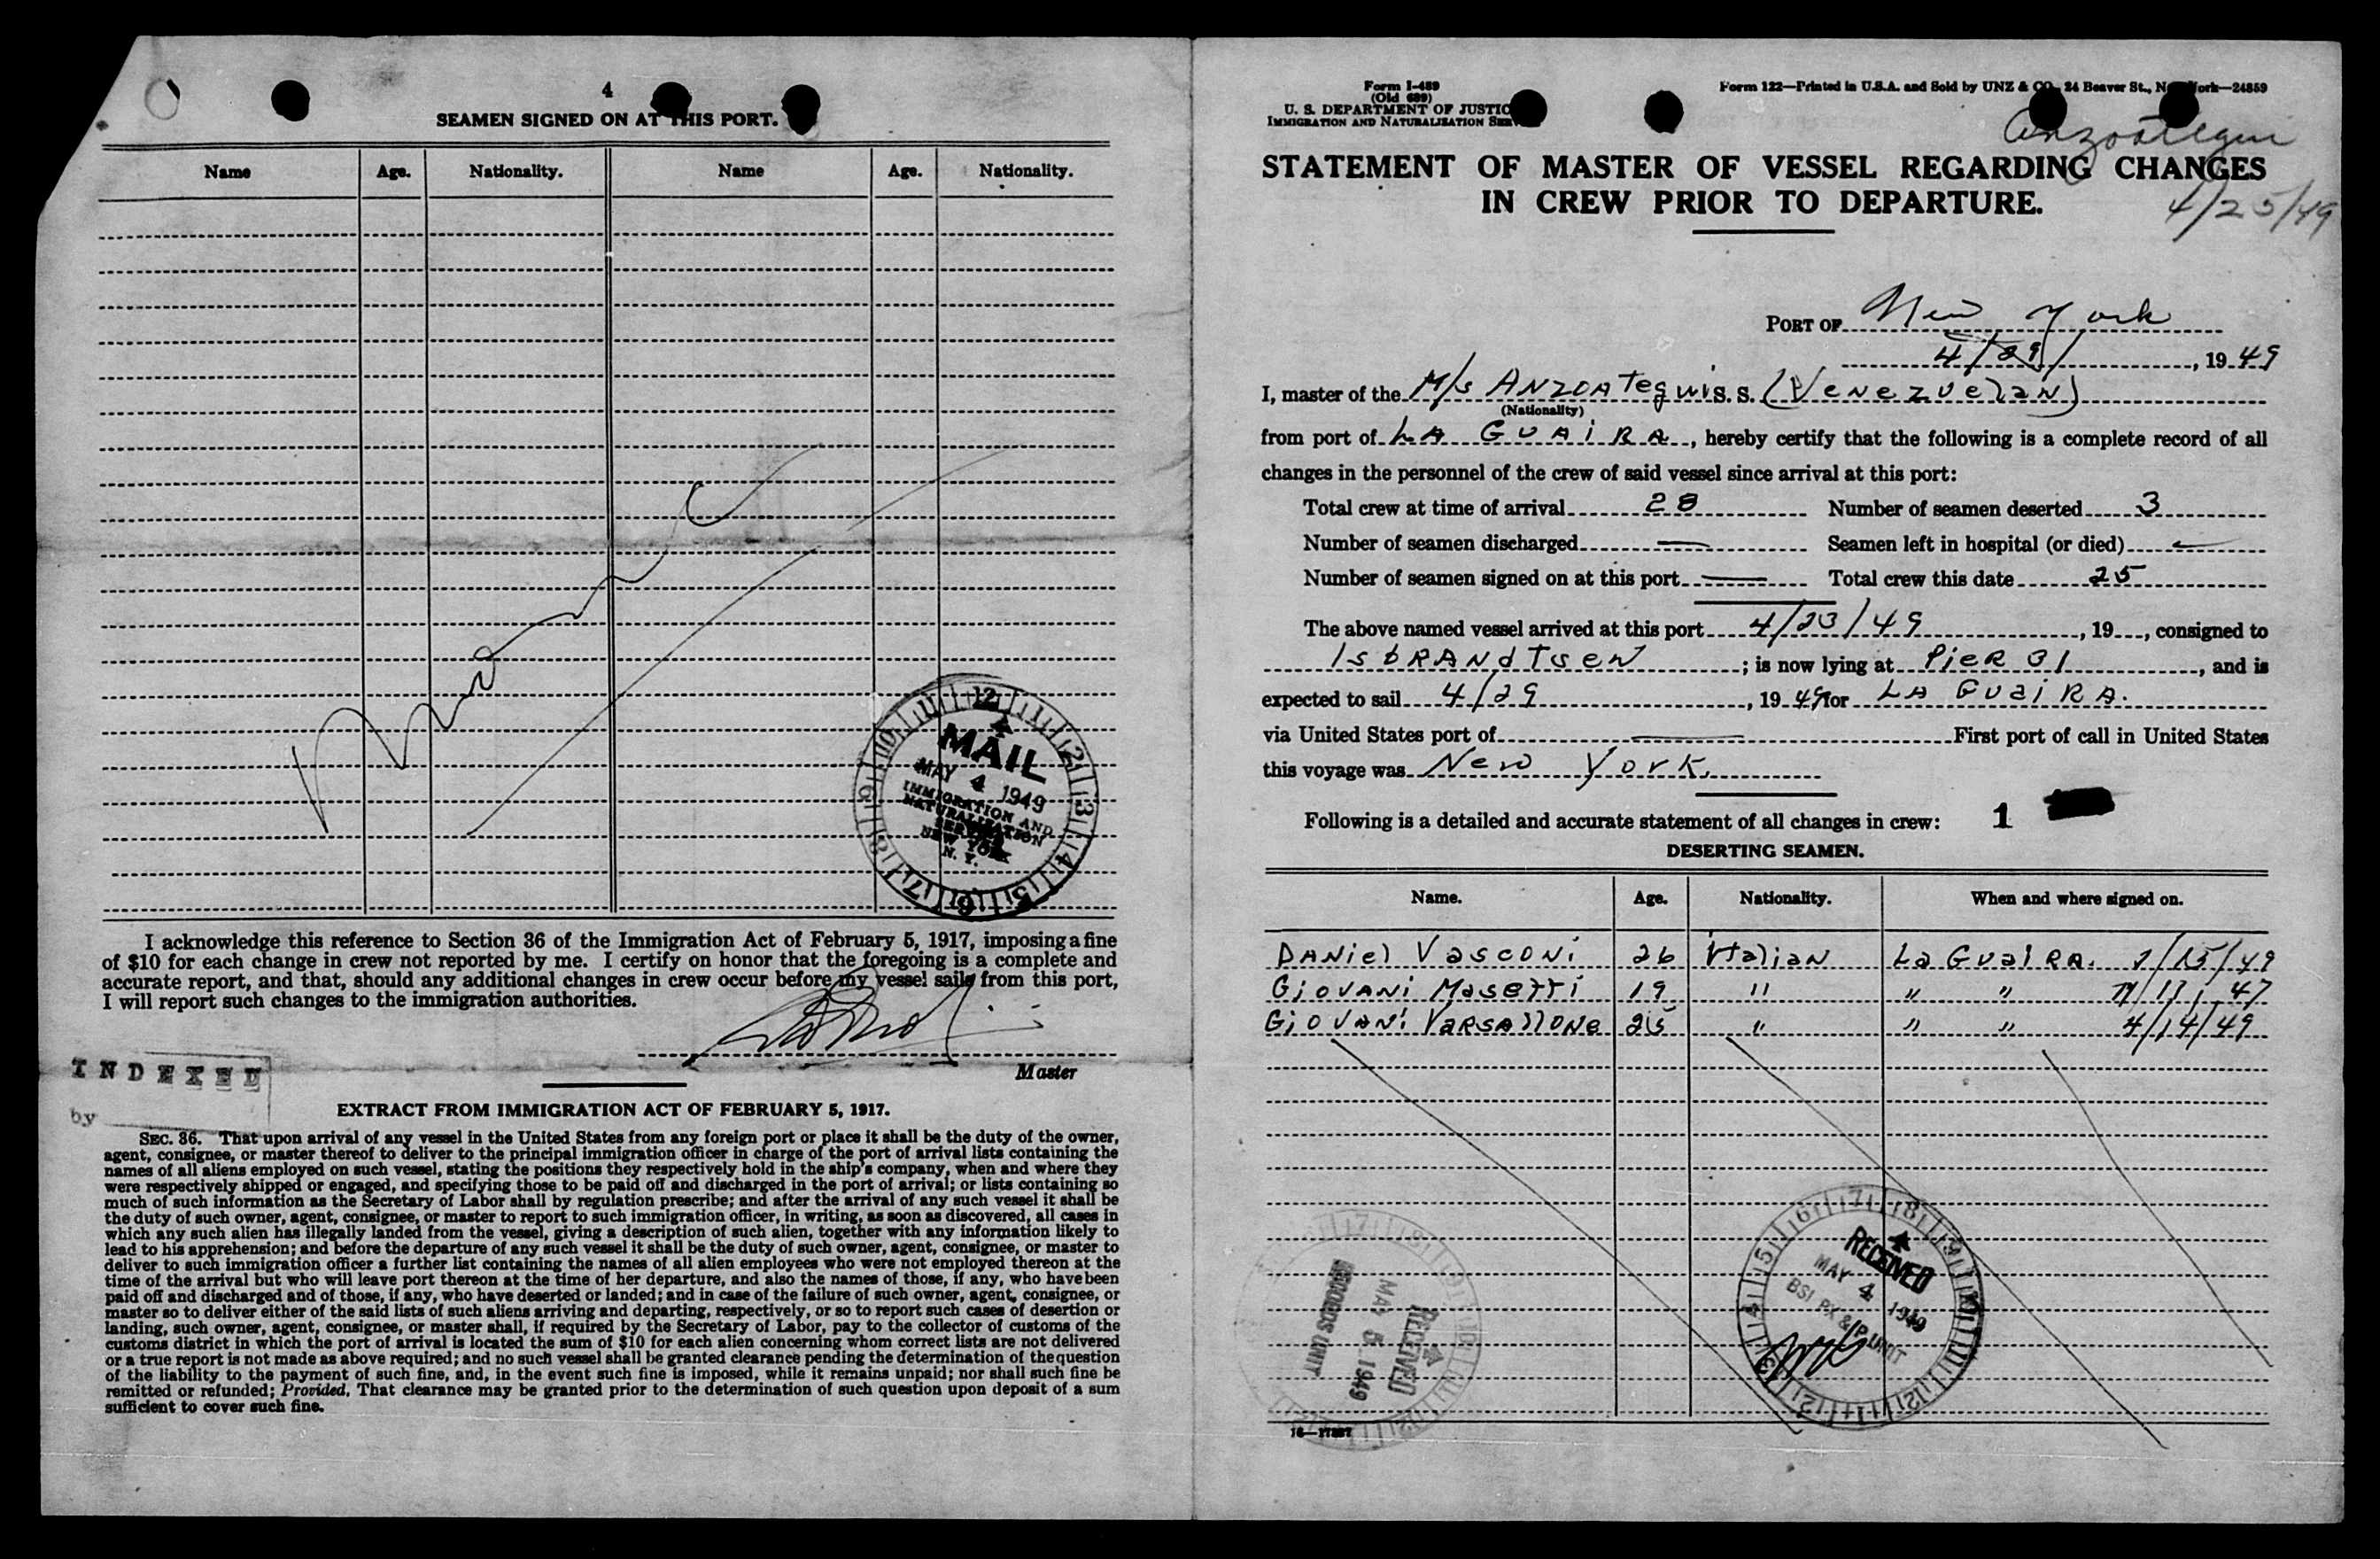 4
SEAMEN SIGNED ON AT THIS PORT.
Name Age. Nationality. Name Age. Nationality.
MAIL
MAY 4 1949
IMMIGRATION AND
NATURALIZATION
SERVICE
NEW YORK
N. Y.
I acknowledge this reference to Section 36 of the Immigration Act of February 5, 1917, imposing a fine
of $10 for each change in crew not reported by me. I certify on honor that the foregoing is a complete and
accurate report, and that, should any additional changes in crew occur before my vessel sails from this port,
I will report such changes to the immigration authorities.
Master
INDEXED
by
EXTRACT FROM IMMIGRATION ACT OF FEBRUARY 5, 1917.
SEC. 36. That upon arrival of any vessel in the United States from any foreign port or place it shall be the duty of the owner,
agent, consignee, or master thereof to deliver to the principal immigration officer in charge of the port of arrival lists containing the
names of all aliens employed on such vessel, stating the positions they respectively hold in the ship's company, when and where they
were respectively shipped or engaged, and specifying those to be paid off and discharged in the port of arrival; or lists containing so
much of such information as the Secretary of Labor shall by regulation prescribe; and after the arrival of any such vessel it shall be
the duty of such owner, agent, consignee, or master to report to such immigration officer, in writing, as soon as discovered, all cases in
which any such alien has illegally landed from the vessel, giving a description of such alien, together with any information likely to
lead to his apprehension; and before the departure of any such vessel it shall be the duty of such owner, agent, consignee, or master to
deliver to such immigration officer a further list containing the names of all alien employees who were not employed thereon at the
time of the arrival but who will leave port thereon at the time of her departure, and also the names of those, if any, who have been
paid off and discharged and of those, if any, who have deserted or landed; and in case of the failure of such owner, agent, consignee, or
master so to deliver either of the said lists of such aliens arriving and departing, respectively, or so to report such cases of desertion or
landing, such owner, agent, consignee, or master shall, if required by the Secretary of Labor, pay to the collector of customs of the
customs district in which the port of arrival is located the sum of $10 for each alien concerning whom correct lists are not delivered
or a true report is not made as above required; and no such vessel shall be granted clearance pending the determination of the question
of the liability to the payment of such fine, and, in the event such fine is imposed, while it remains unpaid; nor shall such fine be
remitted or refunded; Provided, That clearance may be granted prior to the determination of such question upon deposit of a sum
sufficient to cover such fine.
Form I-489
(Old 689)
U. S. DEPARTMENT OF JUSTIC
IMMIGRATION AND NATURALIZATION SER
Form 122—Printed in U.S.A. and Sold by UNZ & CO. 24 Beaver St., N ork—24859
Anzoategui
STATEMENT OF MASTER OF VESSEL REGARDING CHANGES
IN CREW PRIOR TO DEPARTURE.
4/25/49
PORT OF New York
4/29/, 19 49
I, master of the M/s ANZOATeguis. S. (Venezuelan)
(Nationality)
from port of LA GUAiRA, hereby certify that the following is a complete record of all
changes in the personnel of the crew of said vessel since arrival at this port:
Total crew at time of arrival 28 Number of seamen deserted 3
Number of seamen discharged — Seamen left in hospital (or died) —
Number of seamen signed on at this port — Total crew this date 25
The above named vessel arrived at this port 4/23/49, 19, consigned to
IsbRANdTseN; is now lying at PieR 31, and is
expected to sail 4/29, 19 49 for LA GuaiRA.
via United States port of — First port of call in United States
this voyage was New York.
Following is a detailed and accurate statement of all changes in crew: 1
DESERTING SEAMEN.
Name. Age. Nationality. When and where signed on.
DANiel Vasconi 26 italian La GuaiRA. 1/15/49
GiovANi Masetti 19 " " " 47
GiovANi VaRsAllONe 25 " " " 4/14/49
RECEIVED
MAY 4 1949
BSI PX & P UNIT
RECEIVED
MAY 5 1949
RECORDS UNIT